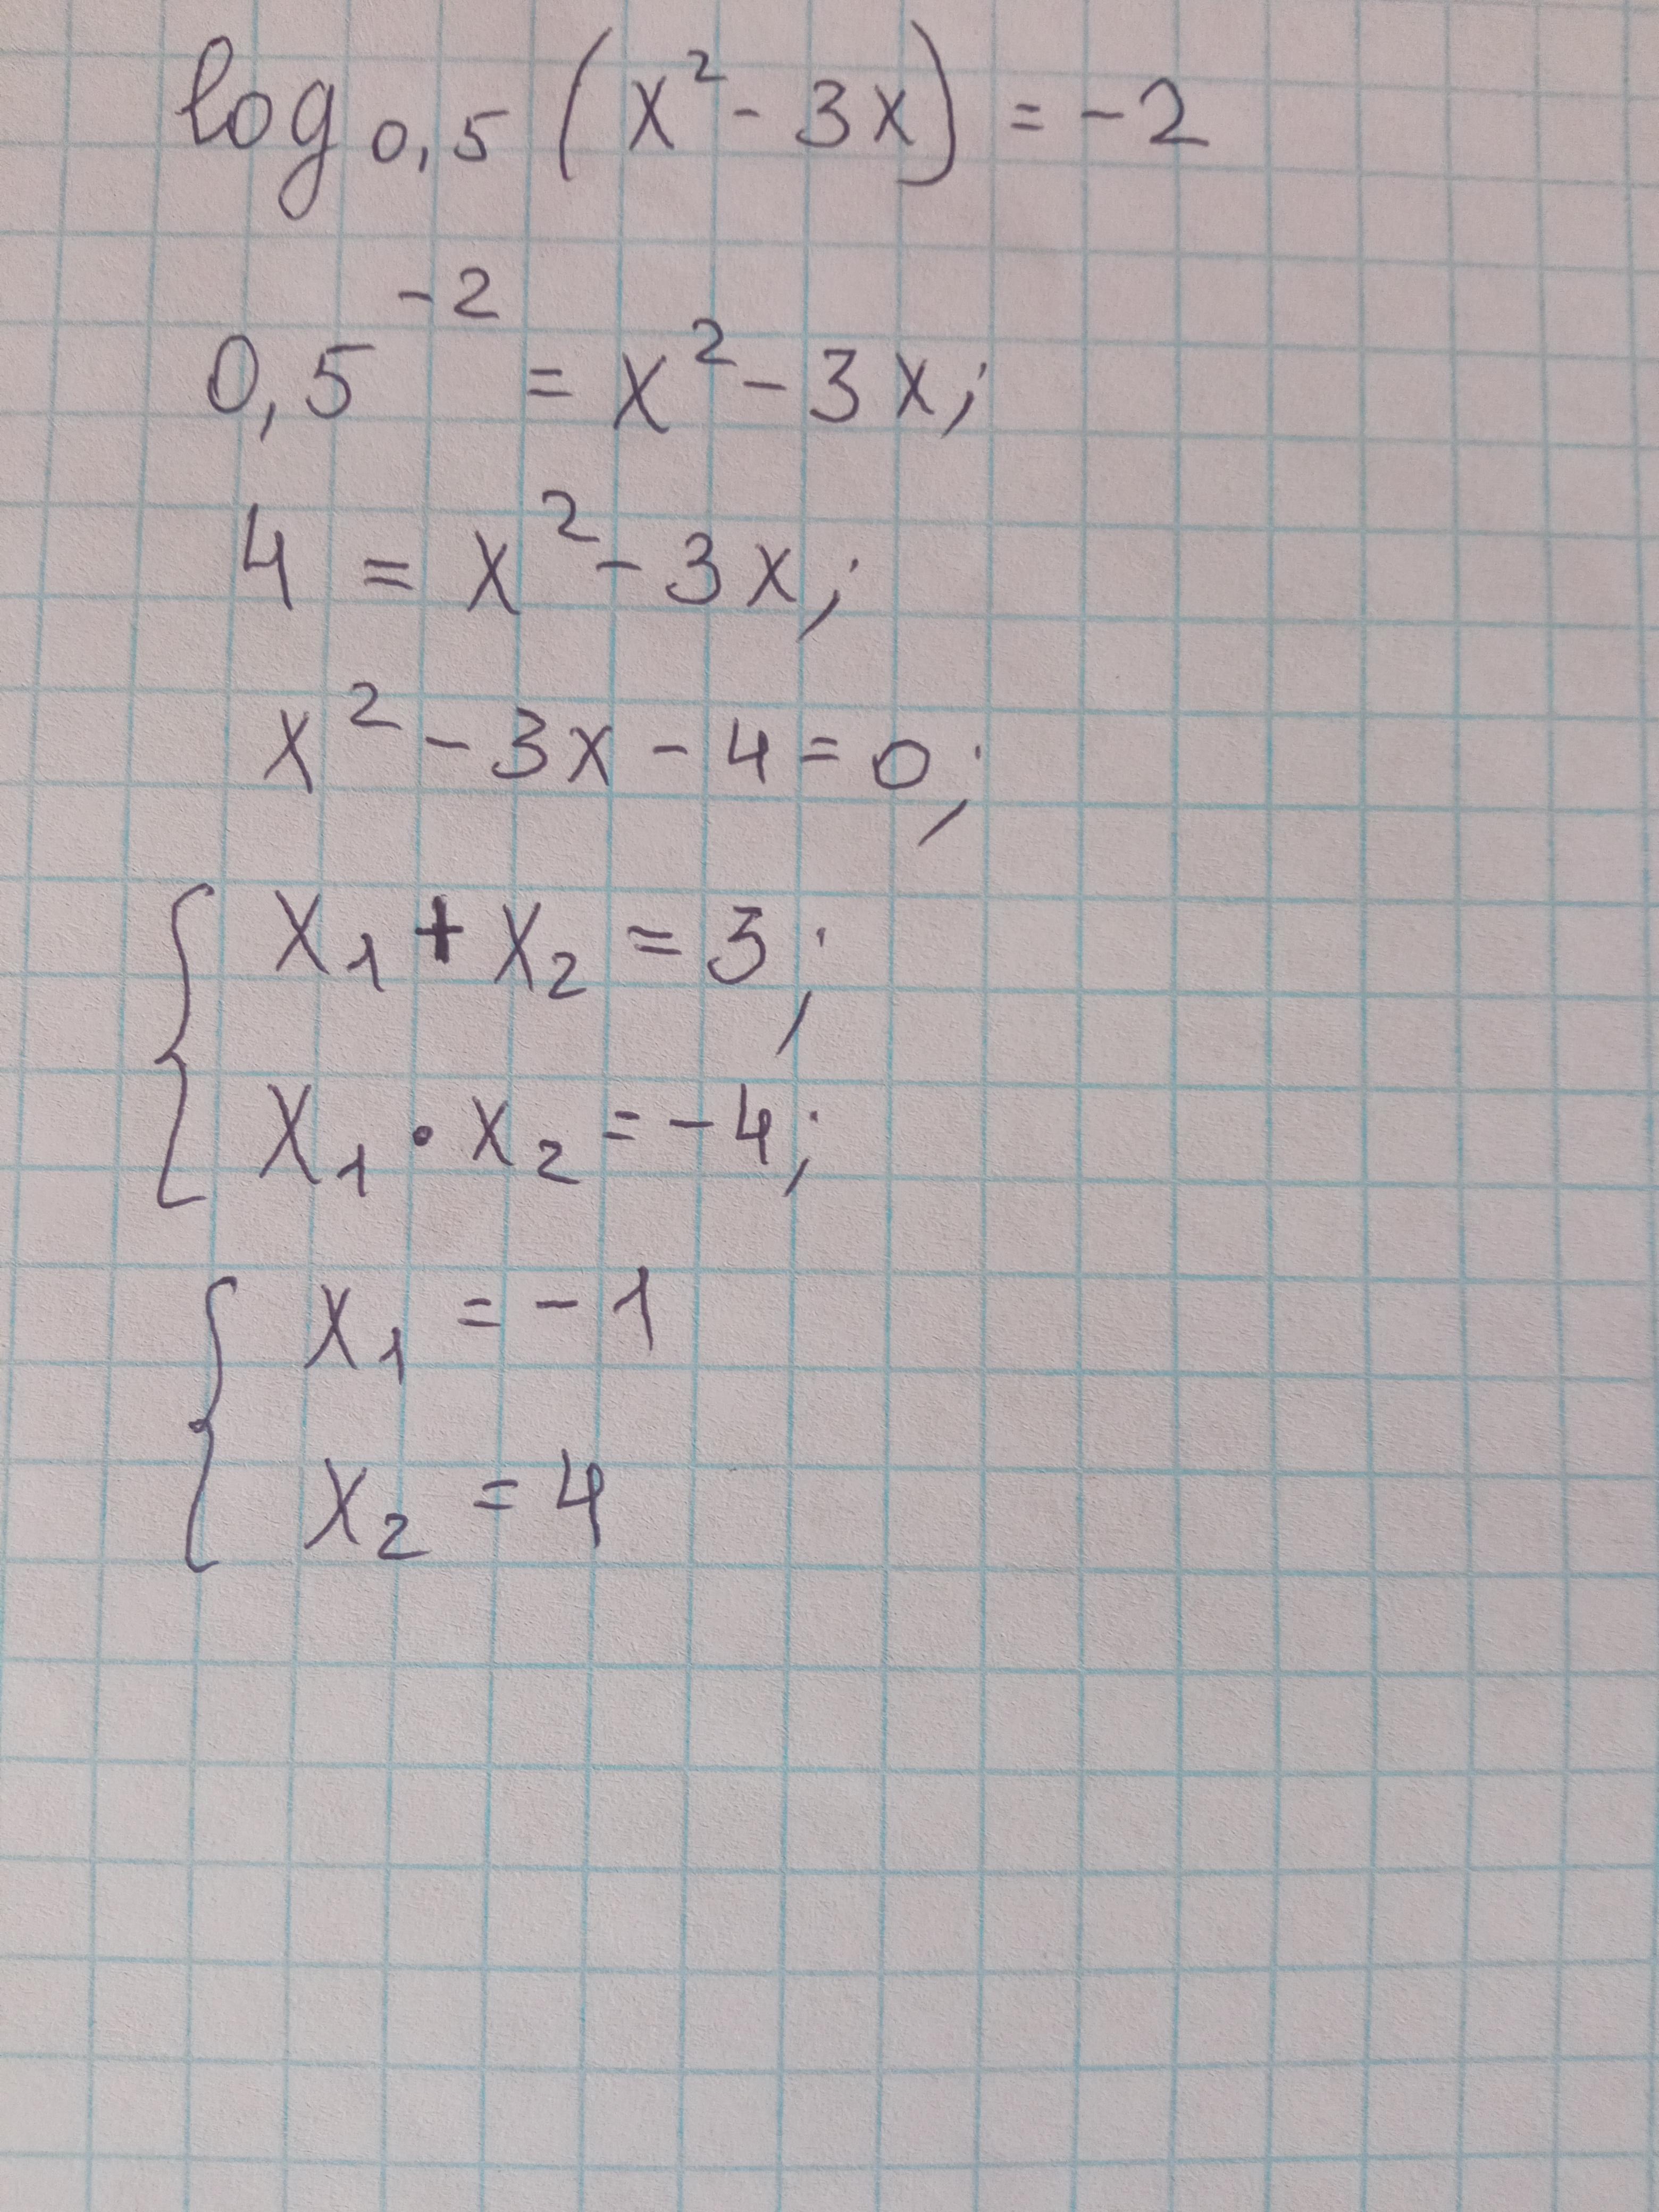 log₀,₅ (x² - 3x) = -2
0,5⁻² = x² - 3x;
4 = x² - 3x;
x² - 3x - 4 = 0;
{ x₁ + x₂ = 3;
x₁ • x₂ = -4;
{ x₁ = -1
x₂ = 4